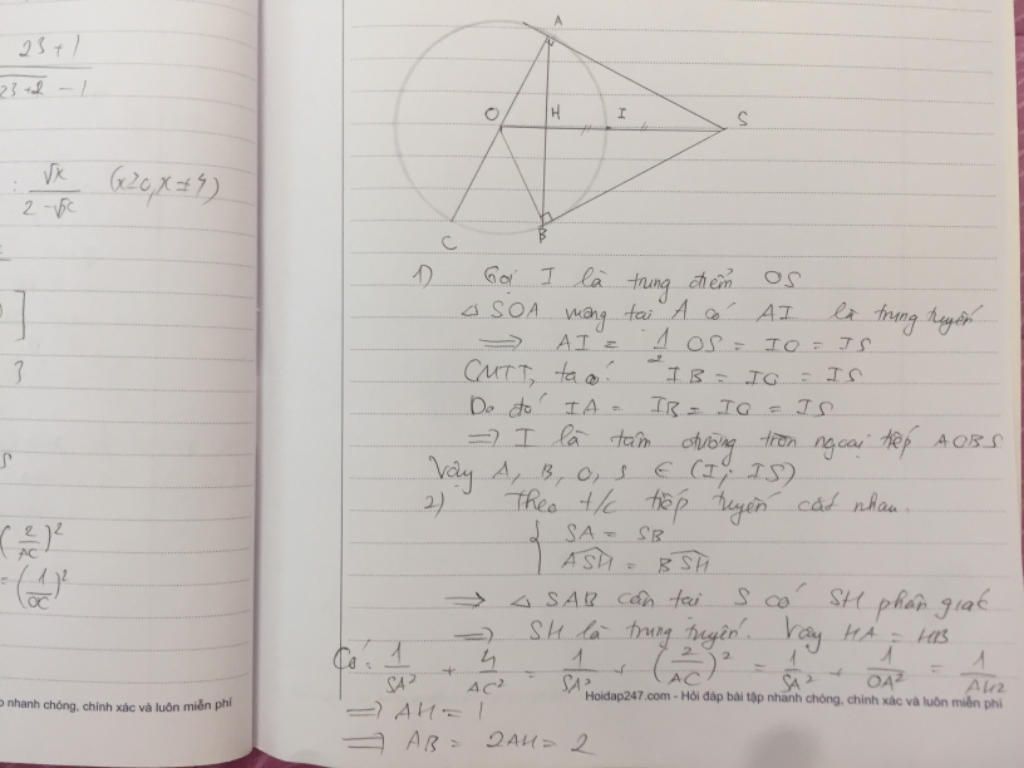 23 + 1
23 + 2 - 1
: √x / 2 - √x (x≥0, x≠4)
]
3
S
(2/AC)²
= (1/OC)²
o nhanh chóng, chính xác và luôn miễn phí
A
O H I S
C B
1) Gọi I là trung điểm OS
△ SOA vuông tại A có AI là trung tuyến
⟹ AI = 1/2 OS = IO = IS
CMTT, ta có: IB = IO = IS
Do đó IA = IB = IO = IS
⟹ I là tâm đường tròn ngoại tiếp AOBS
Vậy A, B, O, S ∈ (I; IS)
2) Theo t/c tiếp tuyến cắt nhau.
{ SA = SB
ASH = BSH
⟹ △ SAB cân tại S có SH phân giác
⟹ SH là trung tuyến. Vậy HA = HB
Có: 1/SA² + 4/AC² = 1/SA² + (2/AC)² = 1/SA² + 1/OA² = 1/AH²
Hoidap247.com - Hỏi đáp bài tập nhanh chóng, chính xác và luôn miễn phí
⟹ AH = 1
⟹ AB = 2AH = 2